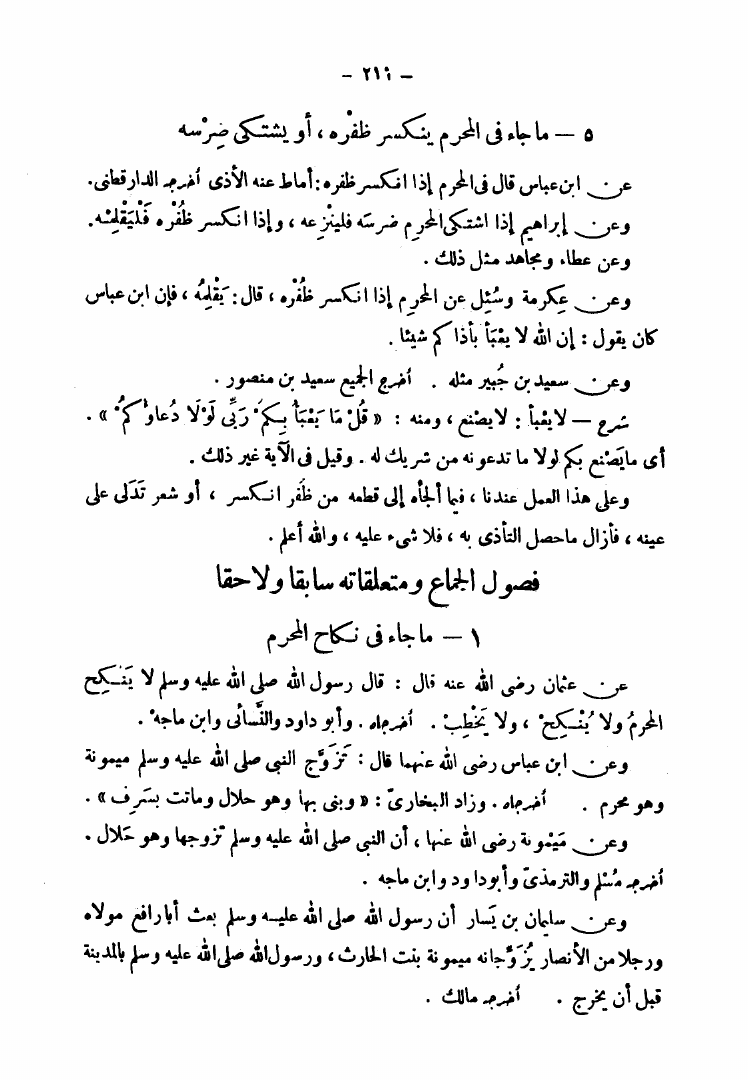 — ٢١٤ —
٥ — ما جاء فى المحرم ينكسر ظفْره ، أو يشتكى ضِرْسه
عن ابن عباس قال فى المحرم إذا انكسر ظفره : أماط عنه الأذى أخرجه الدارقطنى.
وعن إبراهيم إذا اشتكى المحرِم ضرسَه فلينْزِعه ، وإذا انكسر ظُفْره فَلْيَقْلِمْه.
وعن عطاء ومجاهد مثل ذلك .
وعن عِكرمة وسُئِل عن المحرِم إذا انكسر ظُفْره ، قال : يَقْلِمُه ، فإن ابن عباس
كان يقول : إن الله لا يعْبَأ بأذاكم شيئا .
وعن سعيد بن جُبير مثله . أخرج الجميع سعيد بن منصور .
شرح — لا يعْبأ : لا يصْنع ، ومنه : « قُلْ مَا يَعْبَأُ بِكمْ رَبِّى لَوْلَا دُعاؤكُمْ » .
أى ما يَصْنع بكم لولا ما تدعونه من شريك له . وقيل فى الآية غير ذلك .
وعلى هذا العمل عندنا ، فيما ألجأه إلى قطعه من ظُفر انكسر ، أو شعر تَدَلى على
عينه ، فأزال ما حصل التأذى به ، فلا شىء عليه ، والله أعلم .
فصول الجماع ومتعلقاته سابقا ولاحقا
١ — ما جاء فى نكاح المحرم
عن عثمان رضى الله عنه قال : قال رسول الله صلى الله عليه وسلم لا يَنْكِح
المحرمُ ولا يُنْكِحْ ، ولا يَخْطِبْ . أخرجاه . وأبو داود والنَّسائى وابن ماجهْ .
وعن ابن عباس رضى الله عنهما قال : تَزَوَّج النبى صلى الله عليه وسلم ميمونة
وهو محرم . أخرجاه . وزاد البخارىّ : « وبنى بها وهو حلال وماتت بسَرِف » .
وعن مَيْمونة رضى الله عنها ، أن النبى صلى الله عليه وسلم تزوجها وهو حَلال .
أخرجه مُسْلم والترمذىّ وأبو داود وابن ماجه .
وعن سليمان بن يَسار أن رسول الله صلى الله عليه وسلم بعث أبا رافع مولاه
ورجلا من الأنصار يُزَوِّجانه ميمونة بنت الحارث ، ورسول الله صلى الله عليه وسلم بالمدينة
قبل أن يخرج . أخرجه مالك .